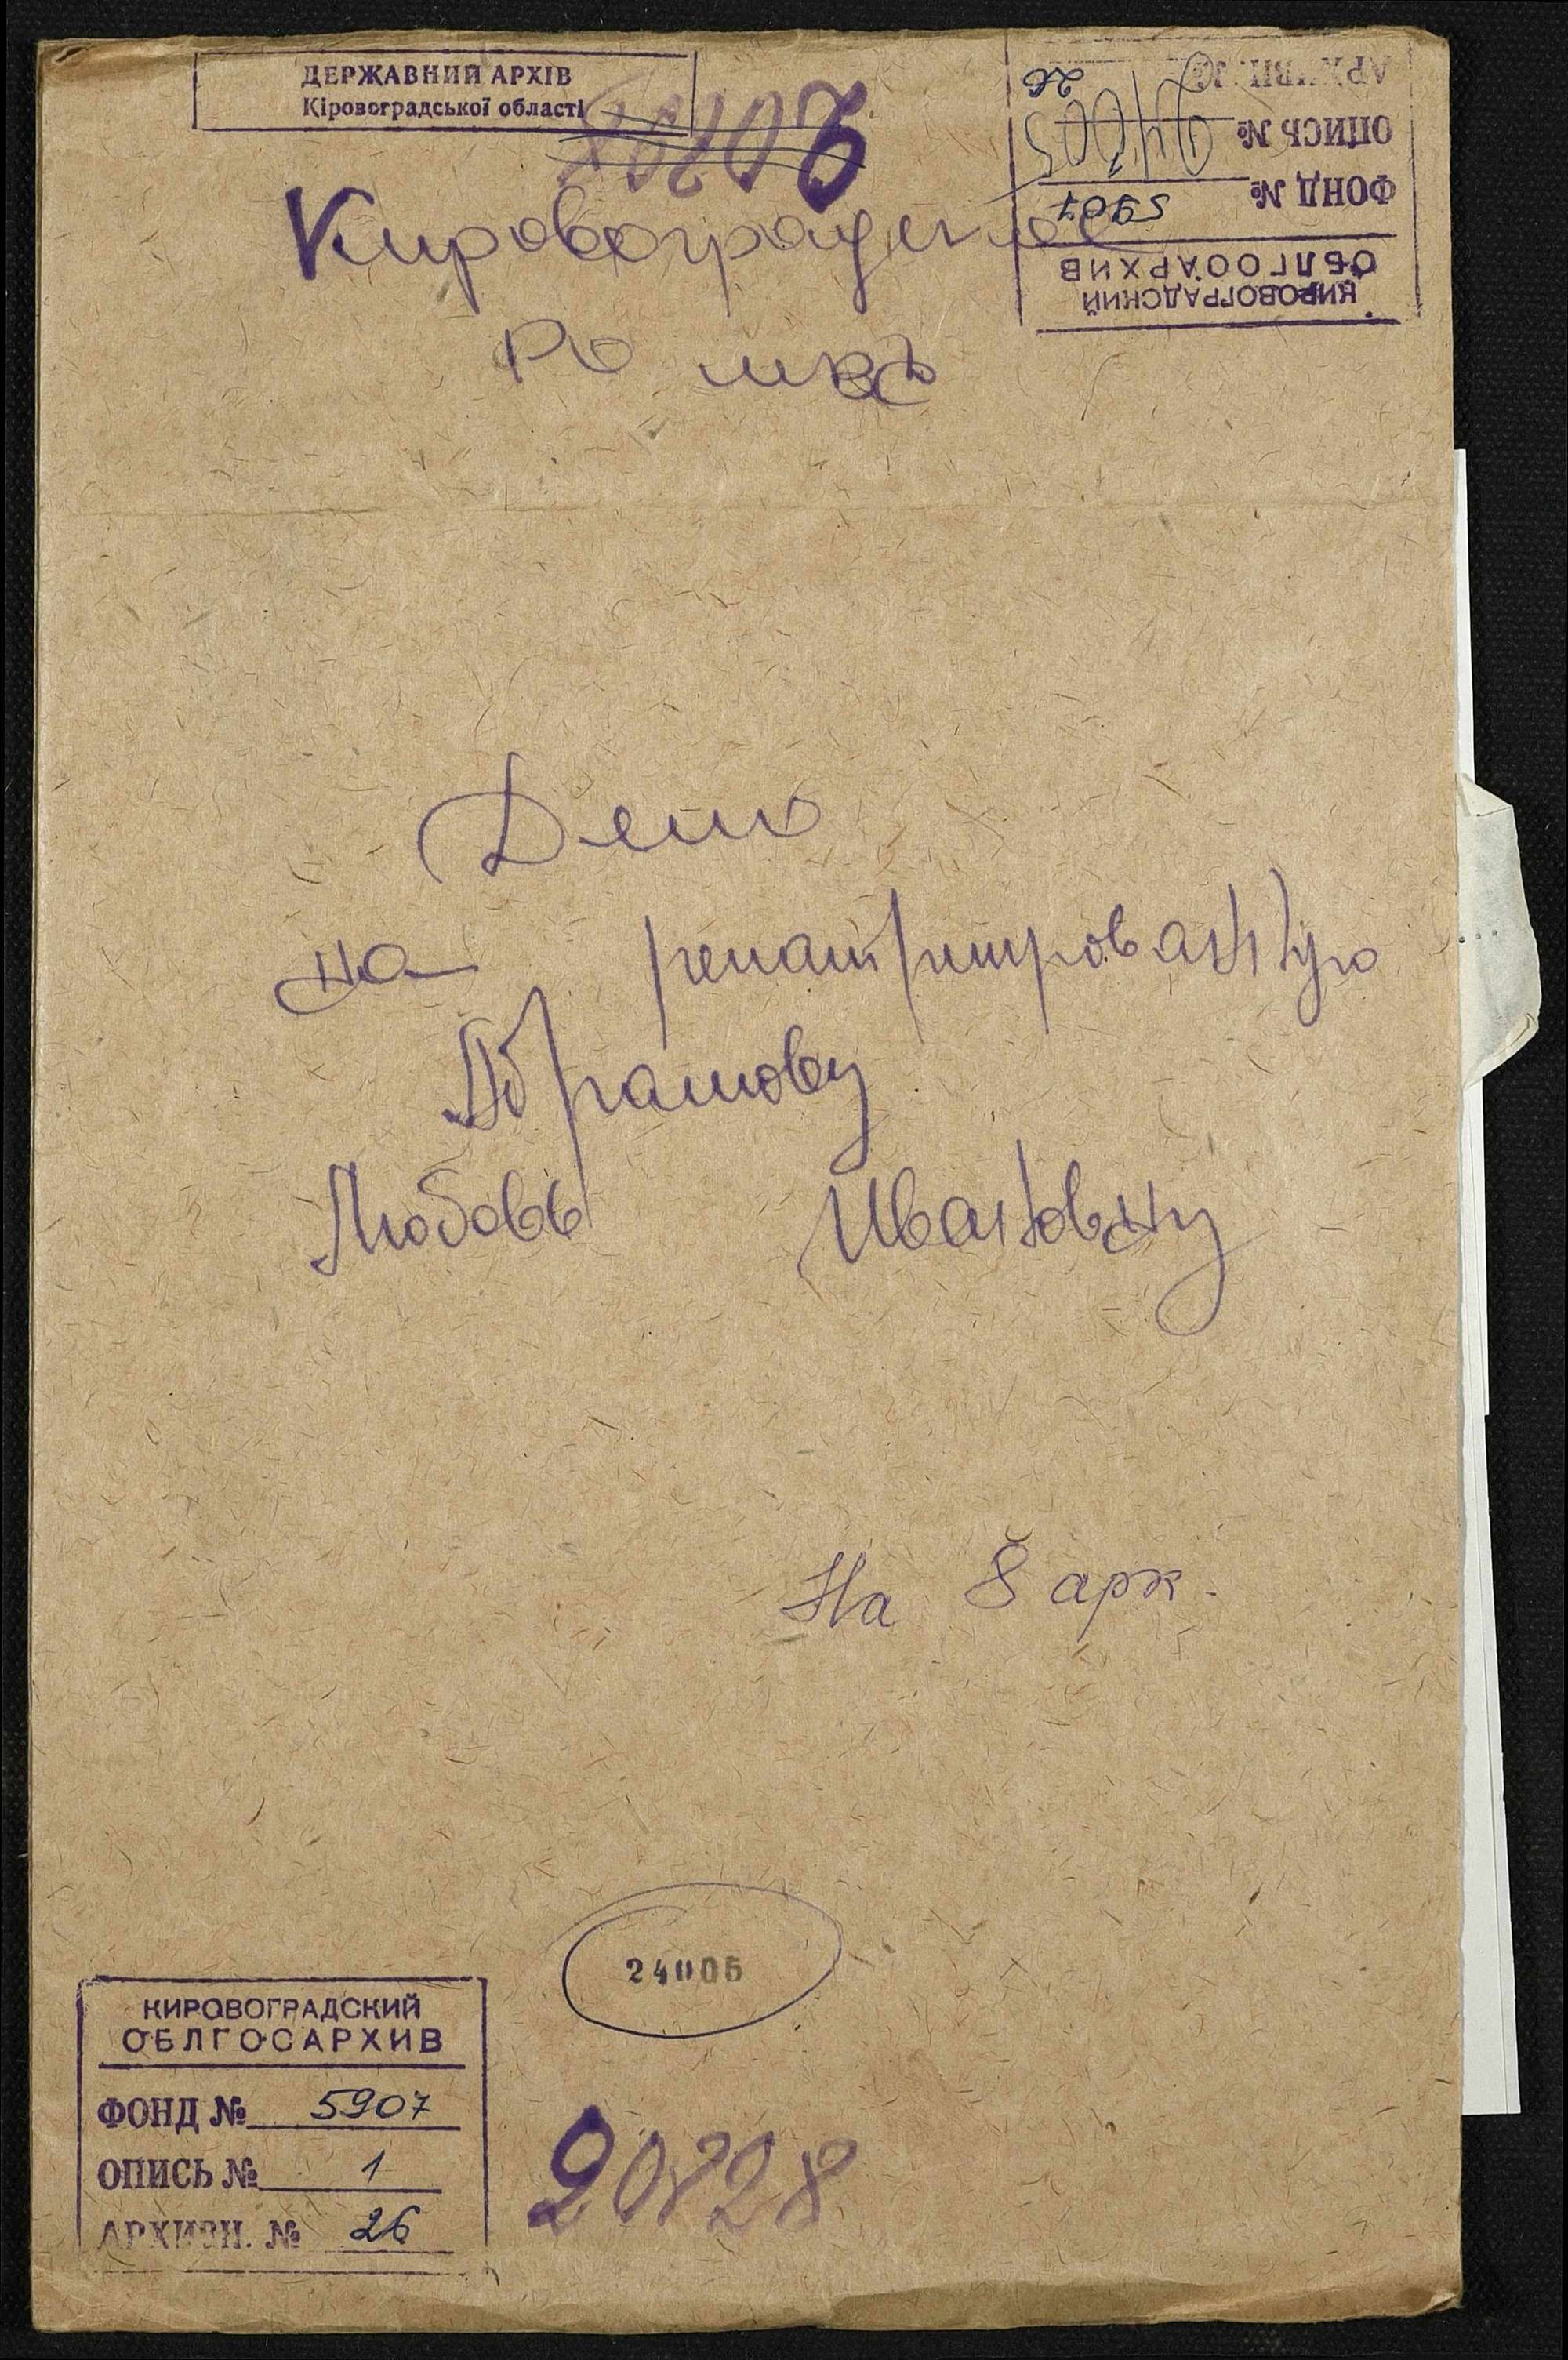 ДЕРЖАВНИЙ АРХІВ
Кіровоградської області
АРХИВН. № 26
ОПИСЬ № 1
ФОНД № 5907
ОБЛГОСАРХИВ
КИРОВОГРАДСКИЙ
Кировоградское
РО
Дело
на репатриированную
Абрамову
Любовь Ивановну
На 8 арк.
24005
КИРОВОГРАДСКИЙ
ОБЛГОСАРХИВ
ФОНД № 5907
ОПИСЬ № 1
АРХИВН. № 26
20828